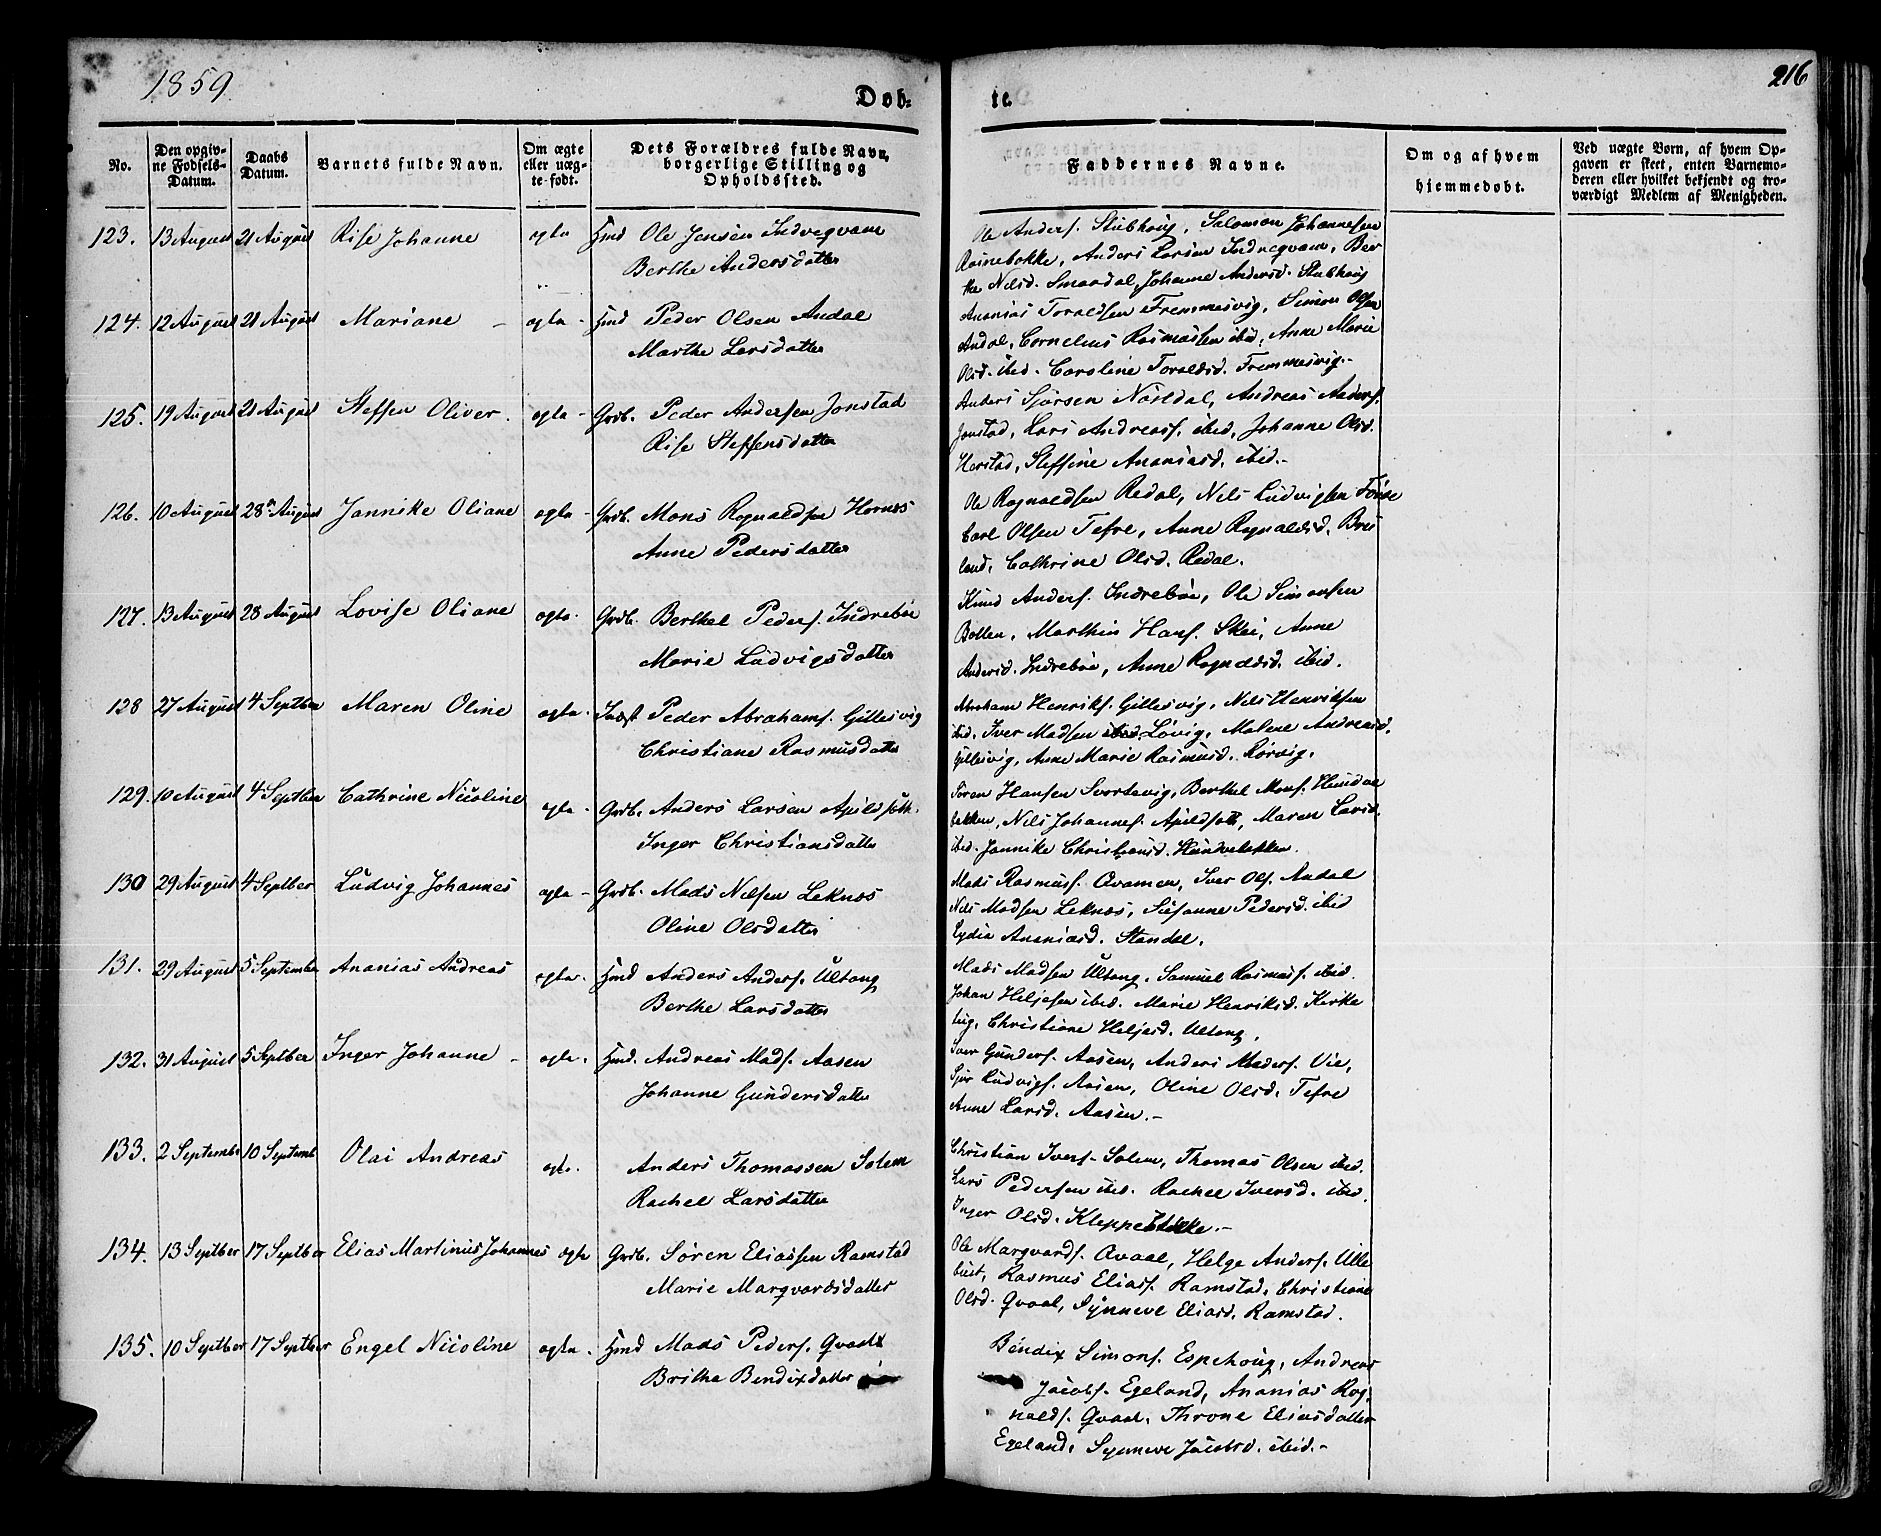 1859.
Døb-
te.
216
No.
Den opgiv-
ne Fødsels-
Datum.
Daabs
Datum.
Barnets fulde Navn.
Om ægte
eller uæg-
te født.
Dets Forældres fulde Navn,
borgerlige Stilling og
Opholdssted.
Faddernes Navne.
Om og af hvem
hjemmedøbt.
Ved uægte Børn, af hvem Op-
gaven er skeet, enten Barnemo-
deren eller hvilket bekjendt og tro-
værdigt Medlem af Menigheden.
123. 13 August 21 August Rise Johanne ægte Hmd Ole Jensen Indvegvam
Berthe Andersdatter
Ole Anders. Stubhoug, Salomon Johannesen
Anders Larsen Indregvam, Ber
the Nilsd. Smaadal, Johanne Andersd. Stubhoug
124. 12 August 21 August Mariane - ægte - Hmd Peder Olsen Andal
Marthe Larsdatter
Ananias Toraldsen Fremmesvig, Simon Olsen
Andal, Cornelius Rasmussen ibid, Anne Marie
Olsd. ibid. Caroline Toraldsd. Fremmesvig.-
125. 19 August 21 August Steffen Oliver. ægte - Grdb. Peder Andersen Jonstad
Rise Steffensdatter
Anders Sjursen Nøsldal, Andreas Anders.
Jonstad, Lars Andreass. ibid, Johanne Olsd.
Herstad, Steffine Ananiasd. ibid.-
126. 10 August 28 August Jannike Oliane ægte - Grdb. Mons Rognaldsen Hornes
Anne Pedersdatter
Ole Rognaldsen Redal, Nils Ludvigsen
Carl Olsen Tefre, Anne Rognaldsd. Bru
land, Cathrine Olsd. Redal.
127. 13 August 28 August Lovise Oliane ægte. Grdb. Berthel Peders. Indrebøe
Marie Ludvigsdatter
Knud Anders. Indrebøe, Ole Simonsen
Bollen, Marthin Hans. Skei, Anne
Andersd. Indrebøe, Anne Rognaldsd. ibid.
128 27 August 4 Septber Maren Oline ægte. Indst Peder Abrahams. Gillesvig
Christiane Rasmusdatter
Abraham Henriks. Gillesvig, Nils Henriksen
ibid, Iver Madsen Løvig, Malene Andreasd.
Gillesvig, Anne Marie Rasmusd. Rørvig,
129. 10 August 4 Septber Cathrine Nicoline ægte - Grdb. Anders Larsen Apildsett.
Inger Christiansdatter
Søren Hansen Svortevig, Berthel Mons. Hundve
bakken, Nils Johannes. Apildsett, Maren Larsd.
ibid. Jannike Christiansd. Hundvebakken.
130 29 August 4 Septber Ludvig Johannes ægte - Grdb. Mads Nilsen Leknes
Oline Olsdatter
Mads Rasmuss. Qvamen, Iver Ols. Andal
Nils Madsen Leknes, Susanne Pedersd. ibid
Lydia Ananiasd. Standal.
131. 29 August 5 September Ananias Andreas ægte. Hmd Anders Anders. Ultang
Berthe Larsdatter
Mads Madsen Ultang, Samuel Rasmuss. ibid.
Johan Heljesen ibid. Marie Henriksd. Kirke
tug, Christiane Heljesd. Ultang,
132. 31 August 5 Septber Inger Johanne - ægte. Hmd. Andreas Mads. Aasen
Johanne Gundersdatter
Iver Gunders. Aasen, Anders Maders. Vie,
Sjur Ludvigs. Aasen, Oline Olsd. Tefre
Anne Larsd. Aasen.-
133. 2 September 10 September Olai Andreas ægte. Anders Thomassen Solem
Rachel Larsdatter
Christian Ivers. Solem, Thomas Olsen ibid.
Lars Pedersen ibid. Rachel Iversd. ibid.
Inger Olsd. Kleppe
134. 13 Septber 17 Septber Elias Martinus Johannes ægte Grdb. Søren Eliassen Ramstad
Marie Margvardsdatter
Ole Margvards. Qvaal, Helge Anders. Ulle
bust, Rasmus Elias. Ramstad, Christiane
Olsd. Qvaal, Synneve Eliasd. Ramstad.
135. 10 Septber 17 Septber Engel Nicoline ægte. Hmd Mads Peders. Qvaal
Brithe Bendixdatter
Bendix Simons. Espehoug, Andreas
Jacobs. Egeland, Ananias Rog
nalds. Qvaal, Throne Eliasdatter
Egeland, Synneve Jacobsd. ibid.-